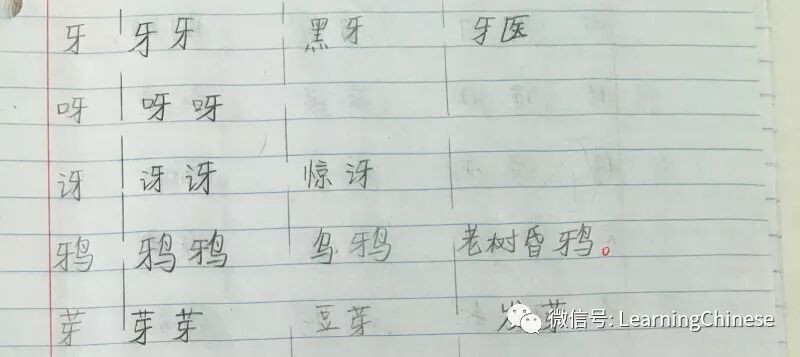 牙 牙牙 黑牙 牙医
呀 呀呀
讶 讶讶 惊讶
鸦 鸦鸦 乌鸦 老树昏鸦。
芽 芽芽 豆芽 发芽
微信号: LearningChinese